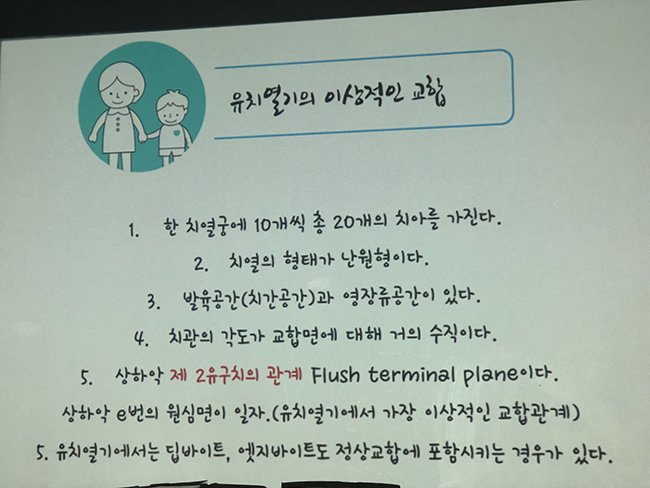 유치열기의 이상적인 교합
1. 한 치열궁에 10개씩 총 20개의 치아를 가진다.
2. 치열의 형태가 난원형이다.
3. 발육공간(치간공간)과 영장류공간이 있다.
4. 치관의 각도가 교합면에 대해 거의 수직이다.
5. 상하악 제 2유구치의 관계 Flush terminal plane이다.
상하악 e번의 원심면이 일자.(유치열기에서 가장 이상적인 교합관계)
5. 유치열기에서는 딥바이트, 엣지바이트도 정상교합에 포함시키는 경우가 있다.